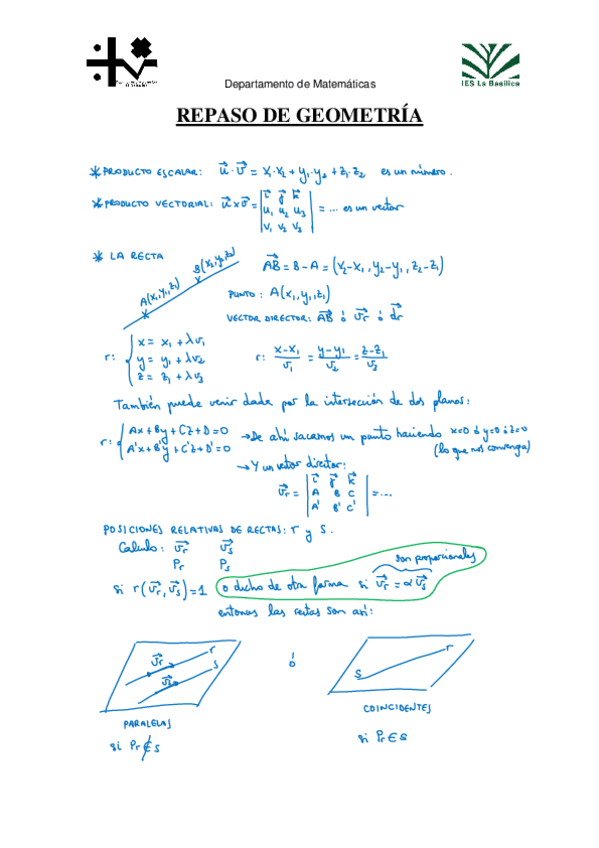 Departamento de Matemáticas
IES La Basílica
REPASO DE GEOMETRÍA
* PRODUCTO ESCALAR: u⃗ · v⃗ = x₁·x₂ + y₁·y₂ + z₁·z₂ es un número.
* PRODUCTO VECTORIAL: u⃗ x v⃗ = | i⃗ j⃗ k⃗ |
| u₁ u₂ u₃ | = ... es un vector
| v₁ v₂ v₃ |
* LA RECTA
A(x₁,y₁,z₁) B(x₂,y₂,z₂)
AB⃗ = B - A = (x₂-x₁, y₂-y₁, z₂-z₁)
PUNTO: A(x₁,y₁,z₁)
VECTOR DIRECTOR: AB⃗ ó v⃗r ó d⃗r
r: { x = x₁ + λv₁
y = y₁ + λv₂
z = z₁ + λv₃
r: (x-x₁)/v₁ = (y-y₁)/v₂ = (z-z₁)/v₃
También puede venir dada por la intersección de dos planos:
r: { Ax + By + Cz + D = 0
A'x + B'y + C'z + D' = 0
→ De ahí sacamos un punto haciendo x=0 ó y=0 ó z=0
(lo que nos convenga)
→ Y un vector director:
v⃗r = | i⃗ j⃗ k⃗ |
| A B C | = ...
| A' B' C' |
POSICIONES RELATIVAS DE RECTAS: r y s.
Calculo: v⃗r v⃗s
Pr Ps
son proporcionales
si r(v⃗r, v⃗s) = 1 o dicho de otra forma si v⃗r = α v⃗s
entonces las rectas son así:
v⃗r r
v⃗s s
ó
s r
PARALELAS
si Pr ∉ s
COINCIDENTES
si Pr ∈ s